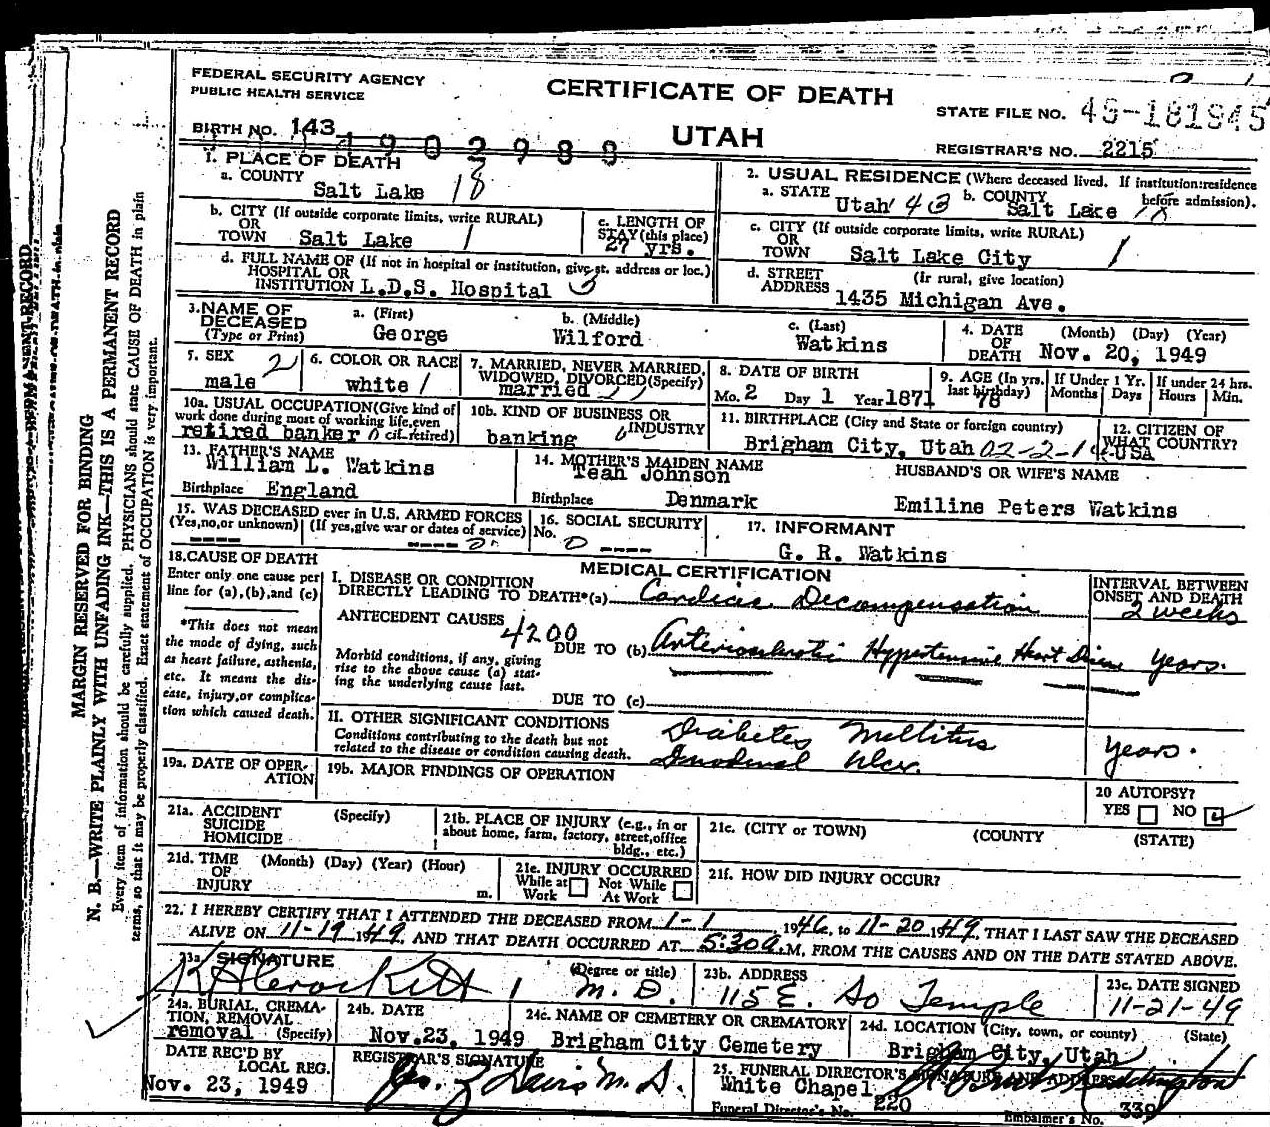 FEDERAL SECURITY AGENCY
PUBLIC HEALTH SERVICE
CERTIFICATE OF DEATH
UTAH
STATE FILE NO. 49-181945
REGISTRAR'S NO. 2215
BIRTH NO. 143
1902988
1. PLACE OF DEATH
a. COUNTY
Salt Lake 18
2. USUAL RESIDENCE (Where deceased lived. If institution: residence before admission).
a. STATE Utah 43 b. COUNTY Salt Lake 18
b. CITY (If outside corporate limits, write RURAL)
OR
TOWN Salt Lake 1
c. LENGTH OF
STAY (this place)
27 yrs.
c. CITY (If outside corporate limits, write RURAL)
OR
TOWN Salt Lake City 1
d. FULL NAME OF (If not in hospital or institution, give st. address or loc.)
HOSPITAL OR
INSTITUTION L.D.S. Hospital
d. STREET (If rural, give location)
ADDRESS
1435 Michigan Ave.
3. NAME OF
DECEASED
(Type or Print)
a. (First) b. (Middle) c. (Last)
George Wilford Watkins
4. DATE (Month) (Day) (Year)
OF
DEATH Nov. 20, 1949
5. SEX 2
male
6. COLOR OR RACE
white 1
7. MARRIED, NEVER MARRIED,
WIDOWED, DIVORCED (Specify)
married
8. DATE OF BIRTH
Mo. 2 Day 1 Year 1871
9. AGE (In yrs.
last birthday)
78
If Under 1 Yr.
Months Days
If under 24 hrs.
Hours Min.
10a. USUAL OCCUPATION (Give kind of
work done during most of working life, even
if retired)
retired banker
10b. KIND OF BUSINESS OR
INDUSTRY
banking
11. BIRTHPLACE (City and State or foreign country)
Brigham City, Utah 02-2-1
12. CITIZEN OF
WHAT COUNTRY?
USA
13. FATHER'S NAME
William L. Watkins
Birthplace England
14. MOTHER'S MAIDEN NAME
Teah Johnson
Birthplace Denmark
HUSBAND'S OR WIFE'S NAME
Emiline Peters Watkins
15. WAS DECEASED ever in U.S. ARMED FORCES
(Yes, no, or unknown) (If yes, give war or dates of service)
---- ----
16. SOCIAL SECURITY
No. 0 ----
17. INFORMANT
G. R. Watkins
18. CAUSE OF DEATH
Enter only one cause per
line for (a), (b), and (c)
*This does not mean
the mode of dying, such
as heart failure, asthenia,
etc. It means the dis-
ease, injury, or complica-
tion which caused death.
MEDICAL CERTIFICATION
I. DISEASE OR CONDITION
DIRECTLY LEADING TO DEATH*(a) Cardiac Decompensation
INTERVAL BETWEEN
ONSET AND DEATH
2 weeks
ANTECEDENT CAUSES
4200
DUE TO (b) Arteriosclerotic Hypertensive Heart Disease years.
Morbid conditions, if any, giving
rise to the above cause (a) stat-
ing the underlying cause last.
DUE TO (c)
II. OTHER SIGNIFICANT CONDITIONS
Conditions contributing to the death but not
related to the disease or condition causing death.
Diabetes Mellitus years.
Duodenal Ulcer.
19a. DATE OF OPER-
ATION
19b. MAJOR FINDINGS OF OPERATION
20 AUTOPSY?
YES NO
21a. ACCIDENT (Specify)
SUICIDE
HOMICIDE
21b. PLACE OF INJURY (e.g., in or
about home, farm, factory, street, office
bldg., etc.)
21c. (CITY or TOWN) (COUNTY) (STATE)
21d. TIME (Month) (Day) (Year) (Hour)
OF
INJURY m.
21e. INJURY OCCURRED
While at
Work
Not While
At Work
21f. HOW DID INJURY OCCUR?
22. I HEREBY CERTIFY THAT I ATTENDED THE DECEASED FROM 1-1 1946, to 11-20 1949, THAT I LAST SAW THE DECEASED
ALIVE ON 11-19 1949, AND THAT DEATH OCCURRED AT 5:30 a.M, FROM THE CAUSES AND ON THE DATE STATED ABOVE.
23a. SIGNATURE
(Degree or title)
M. D.
23b. ADDRESS
115 E. So Temple
23c. DATE SIGNED
11-21-49
24a. BURIAL, CREMA-
TION, REMOVAL
removal (Specify)
24b. DATE
Nov. 23, 1949
24c. NAME OF CEMETERY OR CREMATORY
Brigham City Cemetery
24d. LOCATION (City, town, or county) (State)
Brigham City, Utah
DATE REC'D BY
LOCAL REG.
Nov. 23, 1949
REGISTRAR'S SIGNATURE
25. FUNERAL DIRECTOR'S SIGNATURE AND ADDRESS
White Chapel
Funeral Director's No. 220
Embalmer's No. 339
MARGIN RESERVED FOR BINDING
N. B.—WRITE PLAINLY WITH UNFADING INK—THIS IS A PERMANENT RECORD
Every item of information should be carefully supplied. PHYSICIANS should state CAUSE OF DEATH in plain
terms, so that it may be properly classified. Exact statement of OCCUPATION is very important.